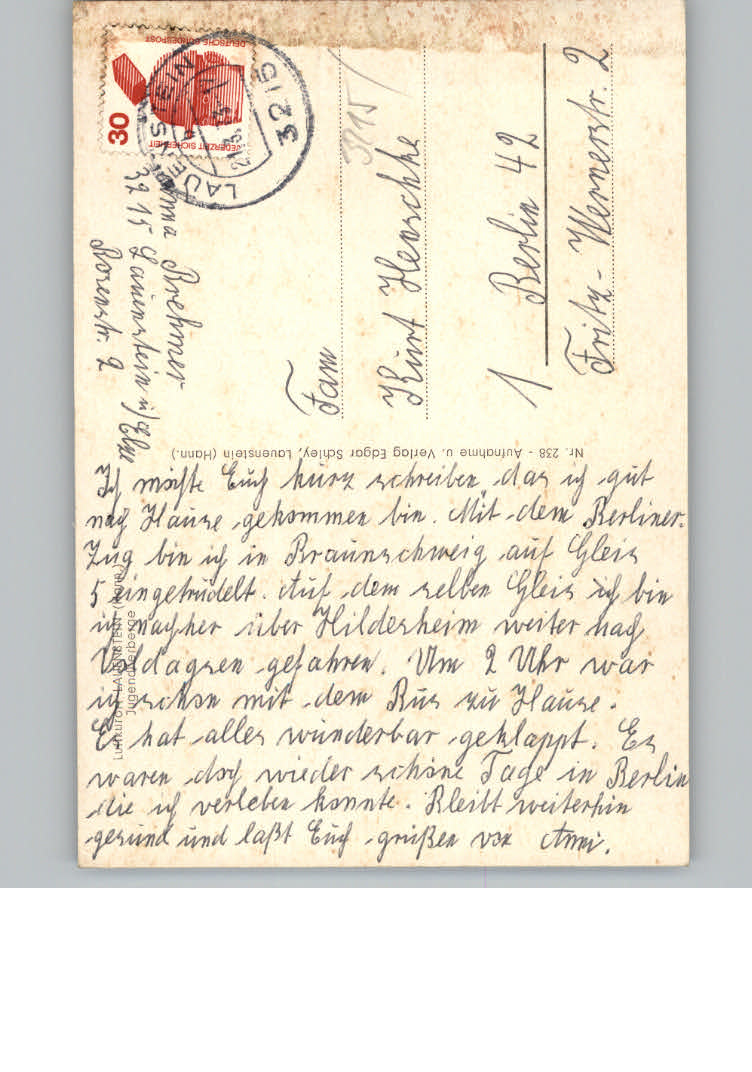 DEUTSCHE BUNDESPOST
30
JEDERZEIT SICHERHEIT
3215 LAUENSTEIN
3215
Anna Brehmer
3215 Lauenstein ü/Elze
Rosenstr. 2
Fam
Kurt Henschke
1 Berlin 42
Fritz-Wernerstr. 2
Nr. 238 - Aufnahme u. Verlag Edgar Schley, Lauenstein (Hann.)
Luftkurort LAUENSTEIN (Hann.)
Jugendherberge
Ich möchte Euch kurz schreiben, das ich gut
nach Hause gekommen bin. Mit dem Berliner-
Zug bin ich in Braunschweig auf Gleis
5 eingetrudelt. Auf dem selben Gleis ich bin
ich nachher über Hildesheim weiter nach
Voldagsen gefahren. Um 2 Uhr war
ich schon mit dem Bus zu Hause.
Es hat alles wunderbar geklappt. Es
waren doch wieder schöne Tage in Berlin
die ich verleben konnte. Bleibt weiterhin
gesund und laßt Euch grüßen von Anni.